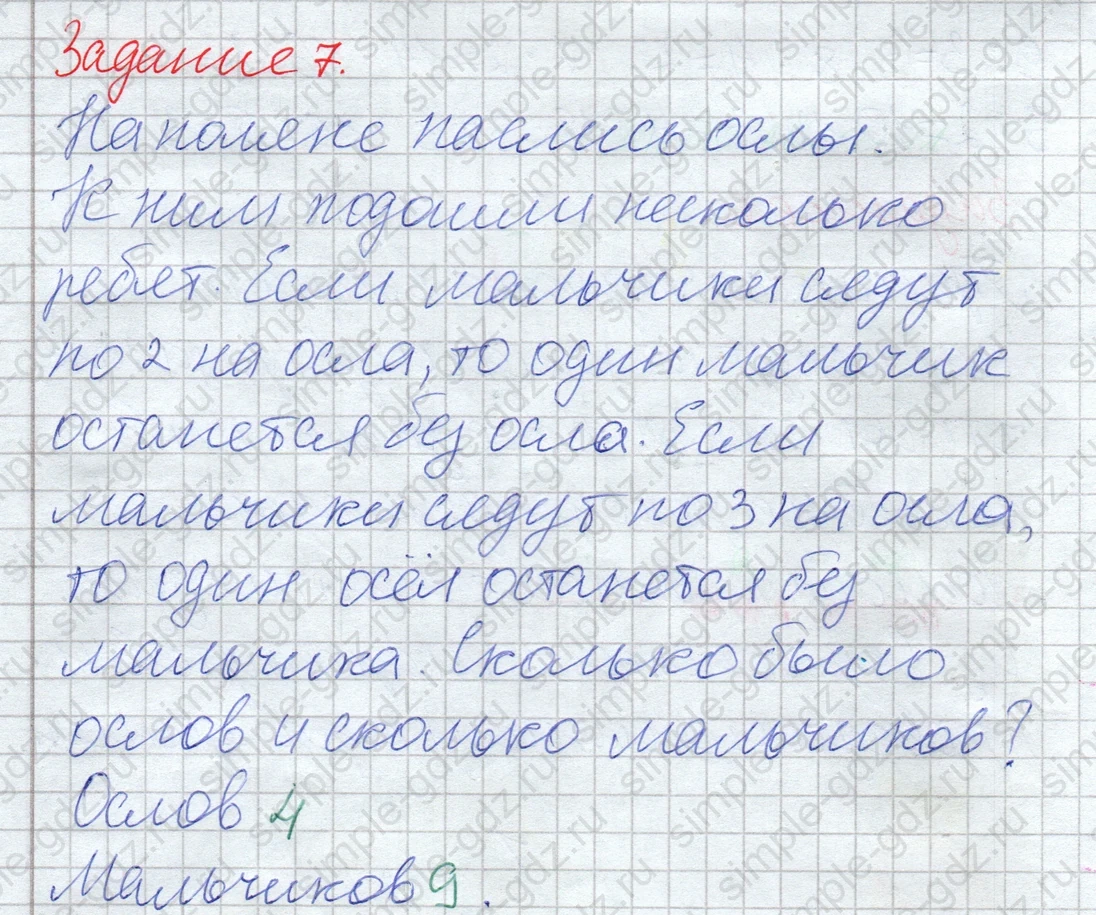 Задание 7.
На поляне паслись ослы.
К ним подошли несколько
ребят. Если мальчики сядут
по 2 на осла, то один мальчик
останется без осла. Если
мальчики сядут по 3 на осла,
то один осёл останется без
мальчика. Сколько было
ослов и сколько мальчиков?
Ослов 4
Мальчиков 9.